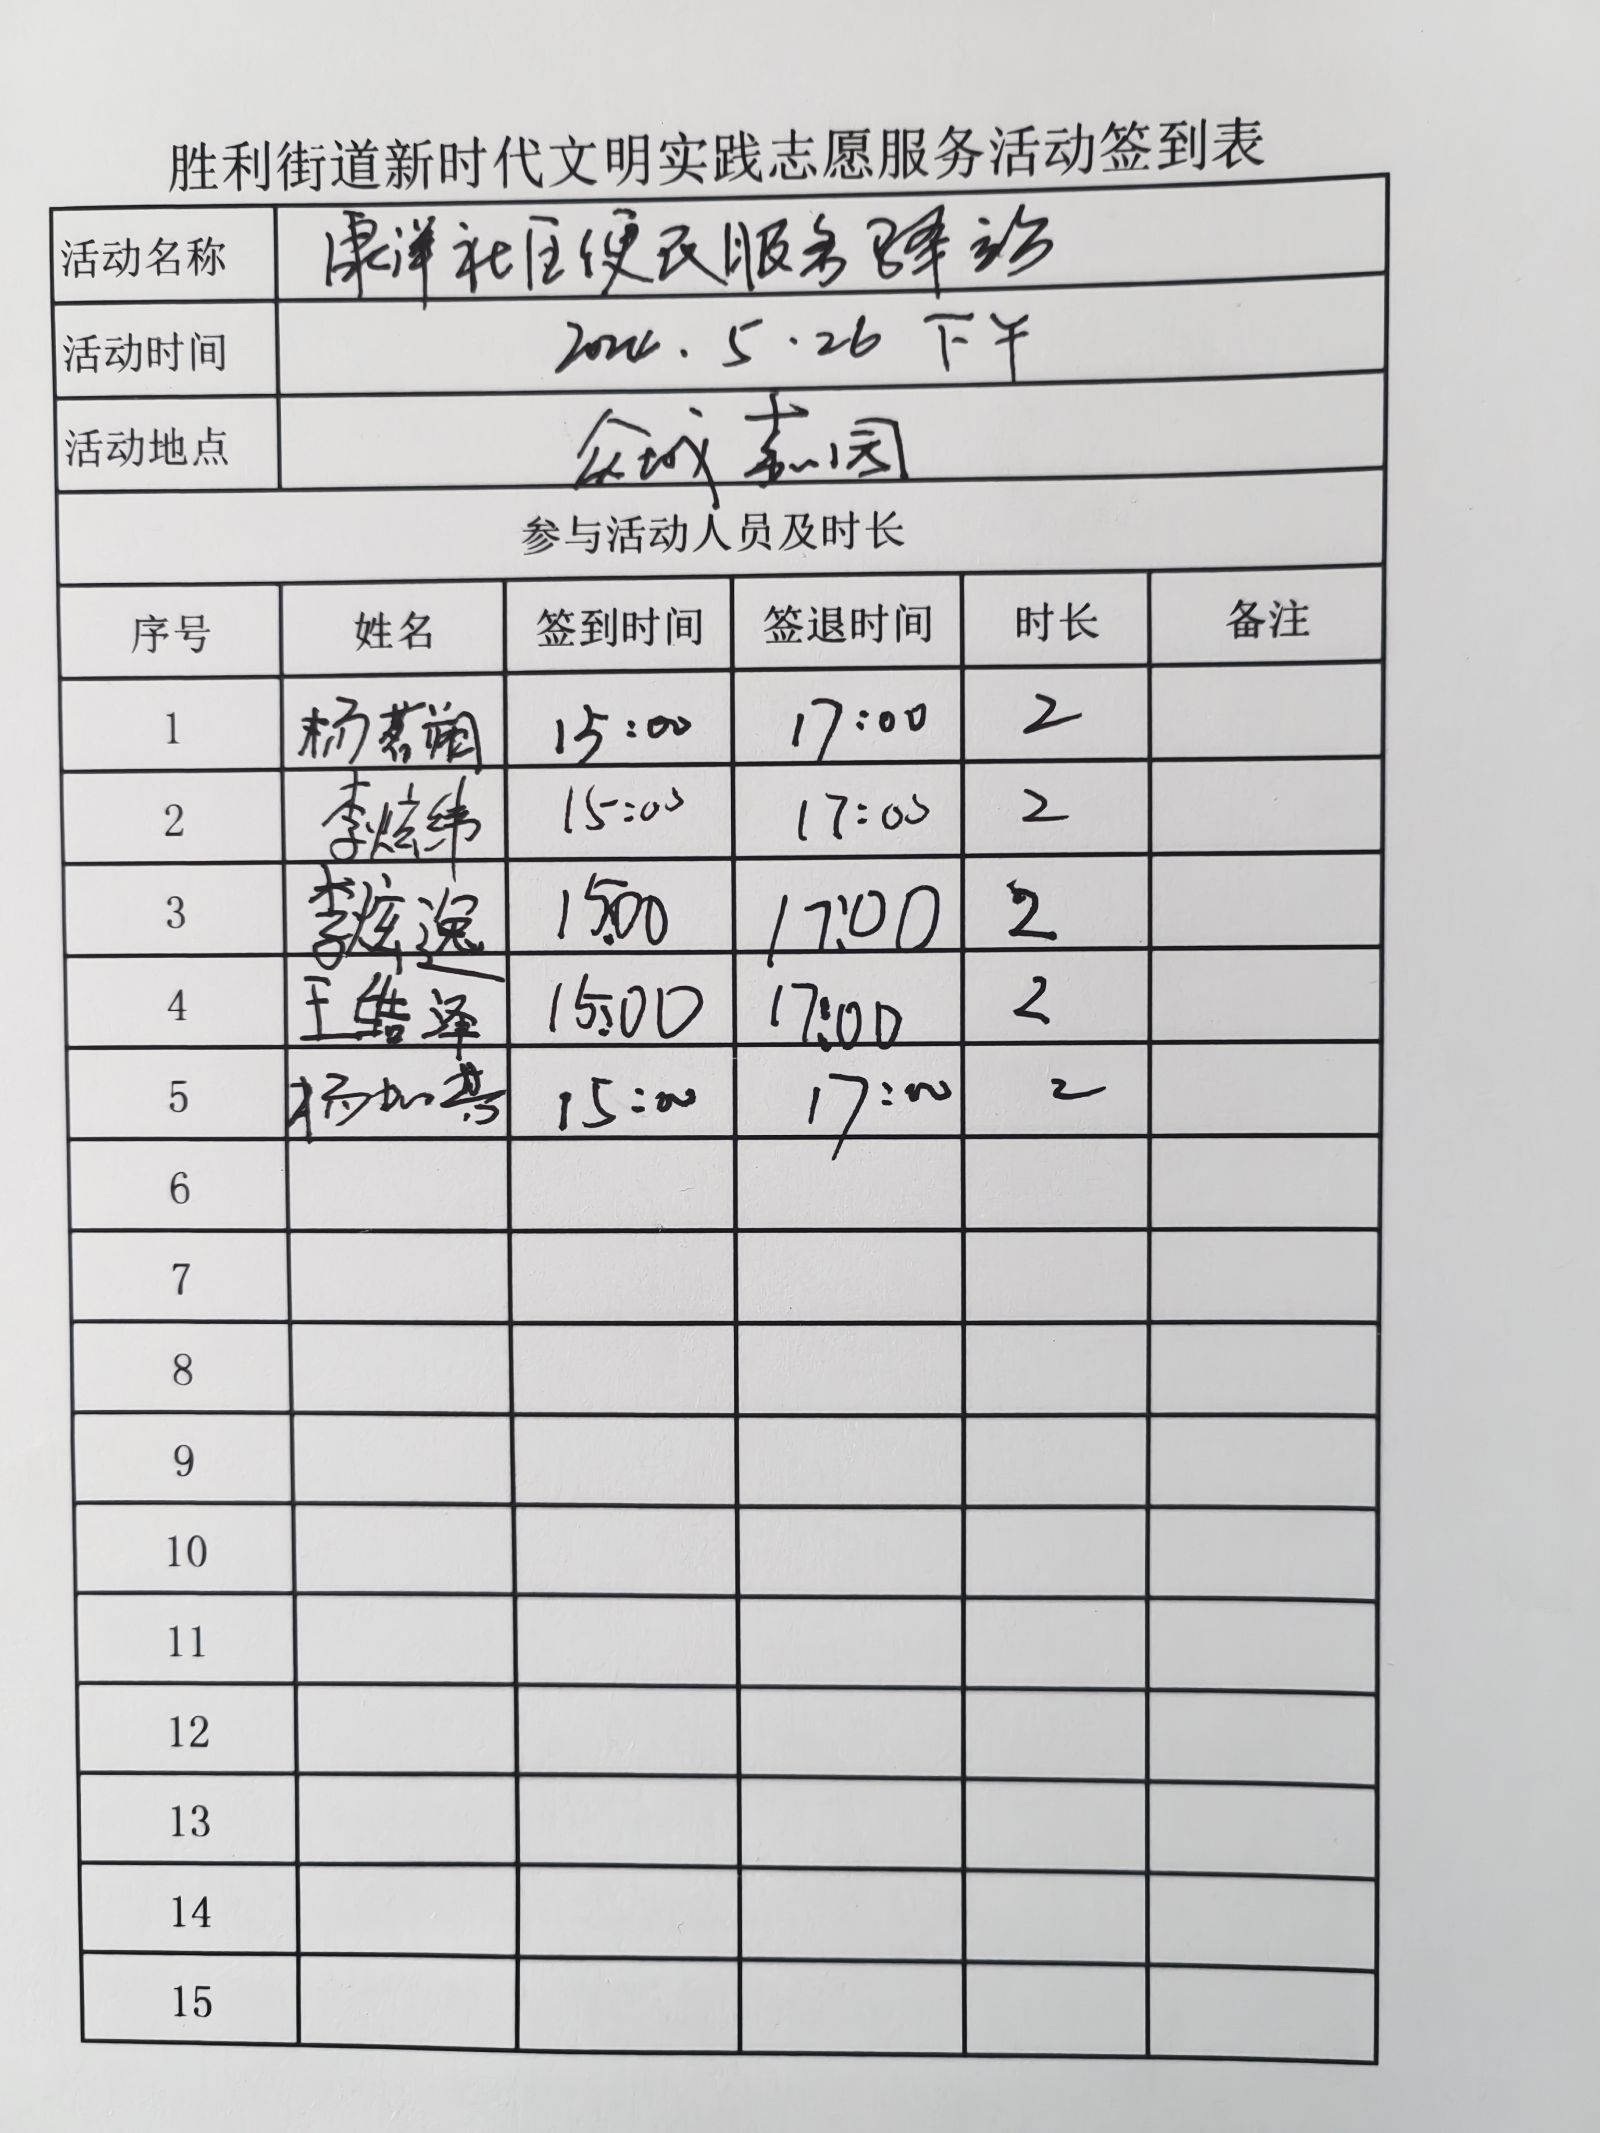 胜利街道新时代文明实践志愿服务活动签到表
活动名称 康洋社区便民服务驿站
活动时间 2024.5.26 下午
活动地点 众成嘉园
参与活动人员及时长
序号 姓名 签到时间 签退时间 时长 备注
1 杨 15:00 17:00 2
2 李炫纬 15:00 17:00 2
3 李炫逸 15:00 17:00 2
4 王皓泽 15:00 17:00 2
5 杨 15:00 17:00 2
6
7
8
9
10
11
12
13
14
15